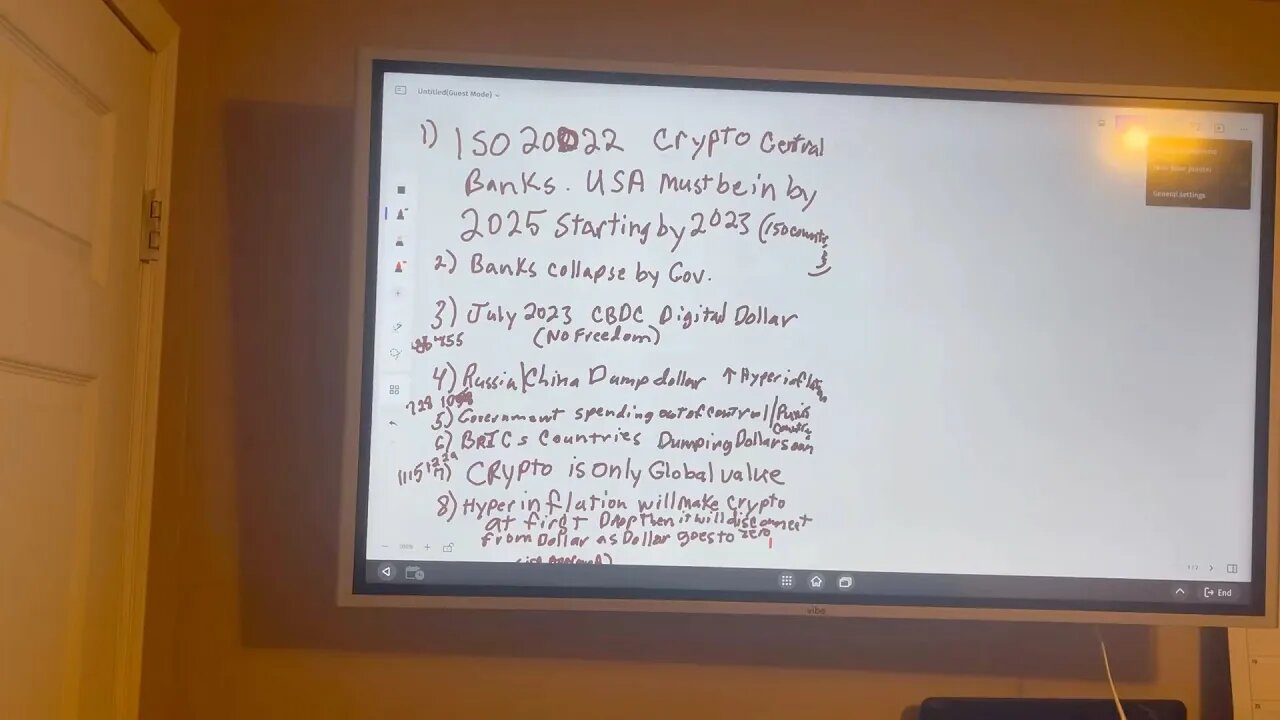 Untitled(Guest Mode)
1) ISO 20022 Crypto Central
Banks. USA Must be in by
2025 Starting by 2023 (150 countr
2) Banks collapse by Gov.
3) July 2023 CBDC Digital Dollar
(No Freedom)
4) Russia/China Dump dollar ↑ Hyperinflation
728
5) Government spending out of control/
6) BRICs Countries Dumping Dollar soon
1115
7) CRypto is only Global value
8) Hyperinflation will make crypto
at first Drop then it will disconnect
from Dollar as Dollar goes to zero
General settings
100%
1/2
End
vibe